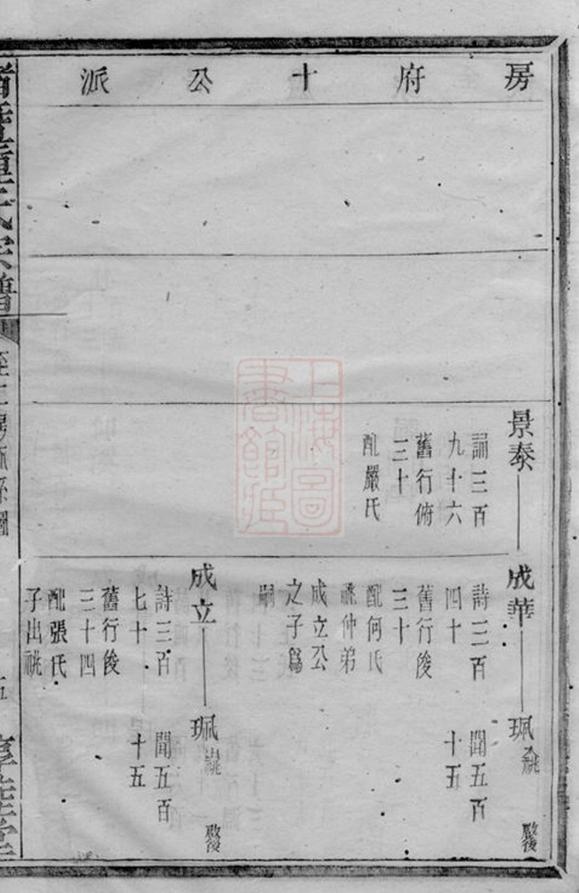 房府十公派
景泰
誦三百
九十六
舊行俯
三十
配嚴氏
成華
詩三百
四十
舊行俊
三十
配何氏
祧仲弟
成立公
之子爲
嗣
珮入祧
聞五百
十五
成立
詩三百
七十
舊行俊
三十四
配張氏
子出祧
珮出祧
聞五百
十五
上海圖書館藏